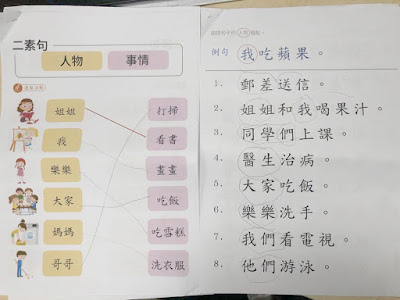 二素句
人物 事情
姐姐 打掃
我 看書
樂樂 畫畫
大家 吃飯
媽媽 吃雪糕
哥哥 洗衣服
例句 我吃蘋果。
1. 郵差送信。
2. 姐姐和我喝果汁。
3. 同學們上課。
4. 醫生治病。
5. 大家吃飯。
6. 樂樂洗手。
7. 我們看電視。
8. 他們游泳。